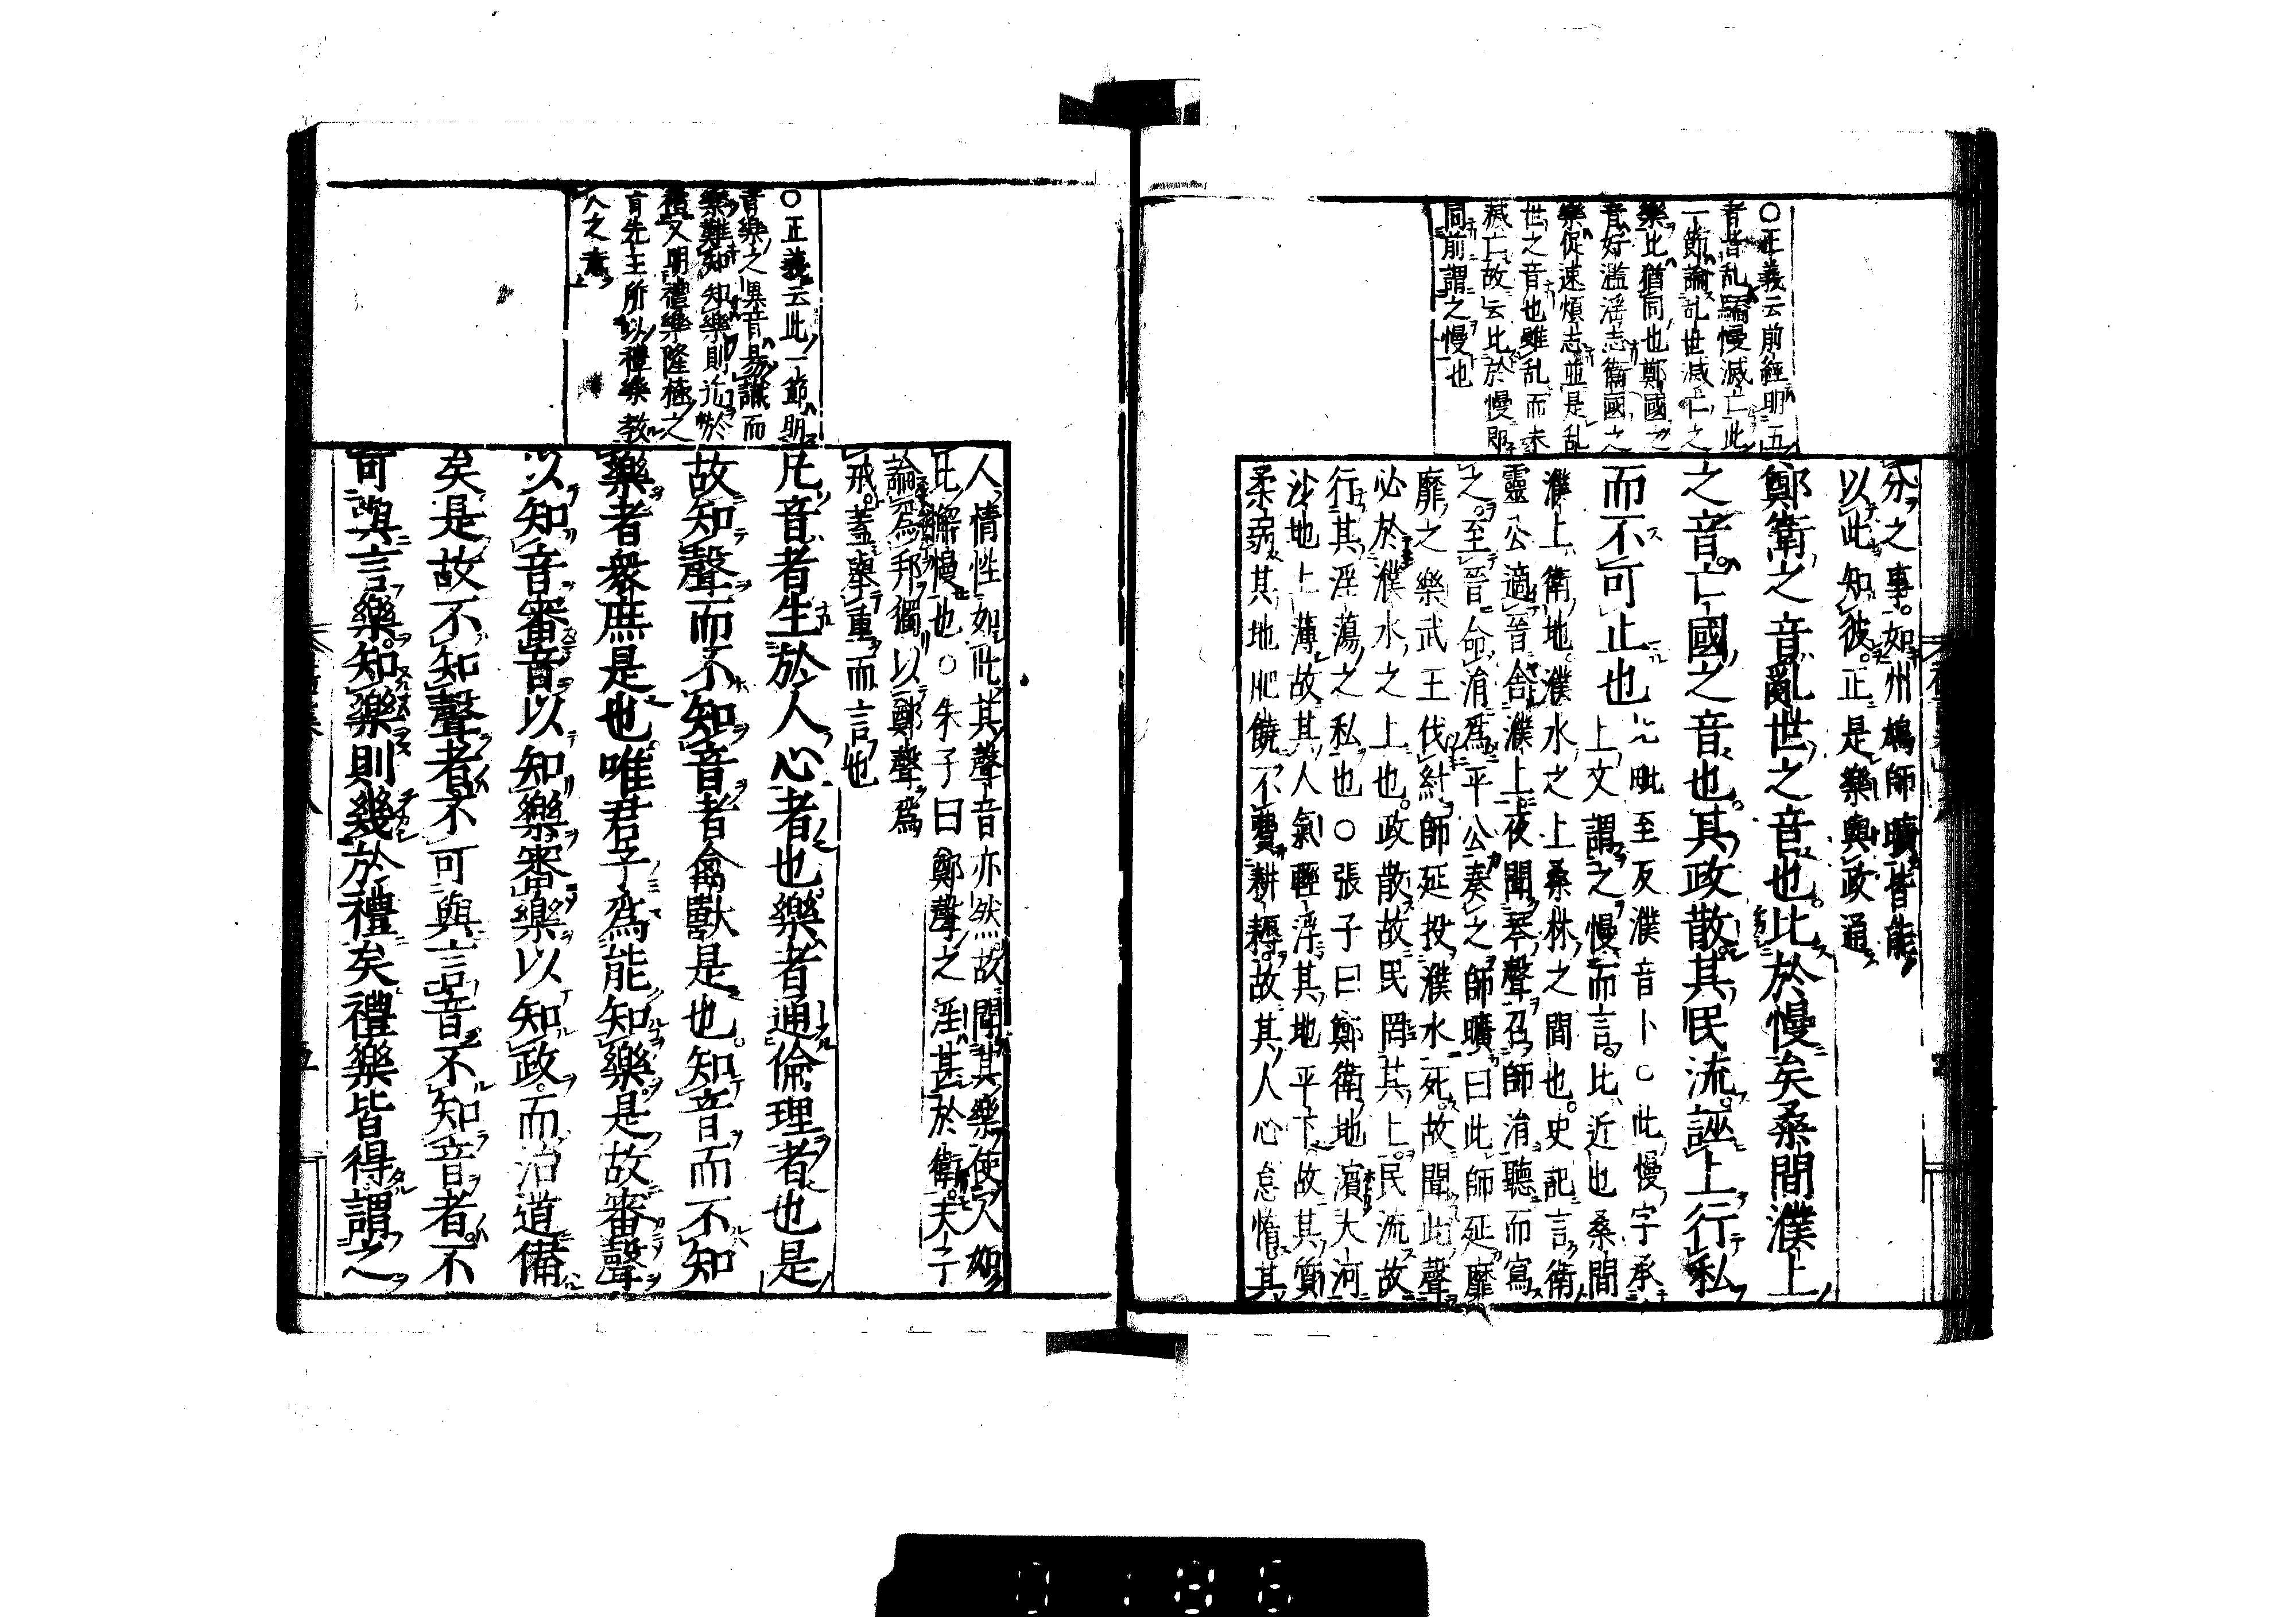 ○正義云前經明五
者皆乱驕慢滅亡此
一節論乱世滅亡之
樂比猶同也鄭國之
音好濫淫志衞國之
樂促速煩志並是乱
世之音也雖乱而未
滅亡故云比於慢即
同前謂之慢也
分之事如州鳩師曠皆能
以此知彼正是樂與政通
鄭衞之音亂世之音也比於慢矣桑間濮上
之音亡國之音也其政散其民流誣上行私
而不可止也
比毗至反濮音卜○此慢字承
上文謂之慢而言比近也桑間
濮上衞地濮水之上桑林之間也史記言衞
靈公適晉舍濮上夜聞琴聲召師涓聽而寫
之至晉命涓爲平公奏之師曠曰此師延靡
靡之樂武王伐紂師延投濮水死故聞此聲
必於濮水之上也政散故民罔其上民流故
行其淫蕩之私也○張子曰鄭衞地濱大河
沙地土薄故其人氣輕浮其地平下故其質
柔弱其地肥饒不費耕耨故其人心怠惰其
○正義云此一節明
音樂之異音易識而
樂難知知樂則近於
禮又明禮樂隆極之
旨先王所以禮樂教
人之意
人情性如此其聲音亦然故聞其樂使人如
此懈慢也○朱子曰鄭聲之淫甚於衞夫子
論爲邦獨以鄭聲爲
戒蓋舉重而言也
凡音者生於人心者也樂者通倫理者也是
故知聲而不知音者禽獸是也知音而不知
樂者衆庶是也唯君子爲能知樂是故審聲
以知音審音以知樂審樂以知政而治道備
矣是故不知聲者不可與言音不知音者不
可與言樂知樂則幾於禮矣禮樂皆得謂之
0186